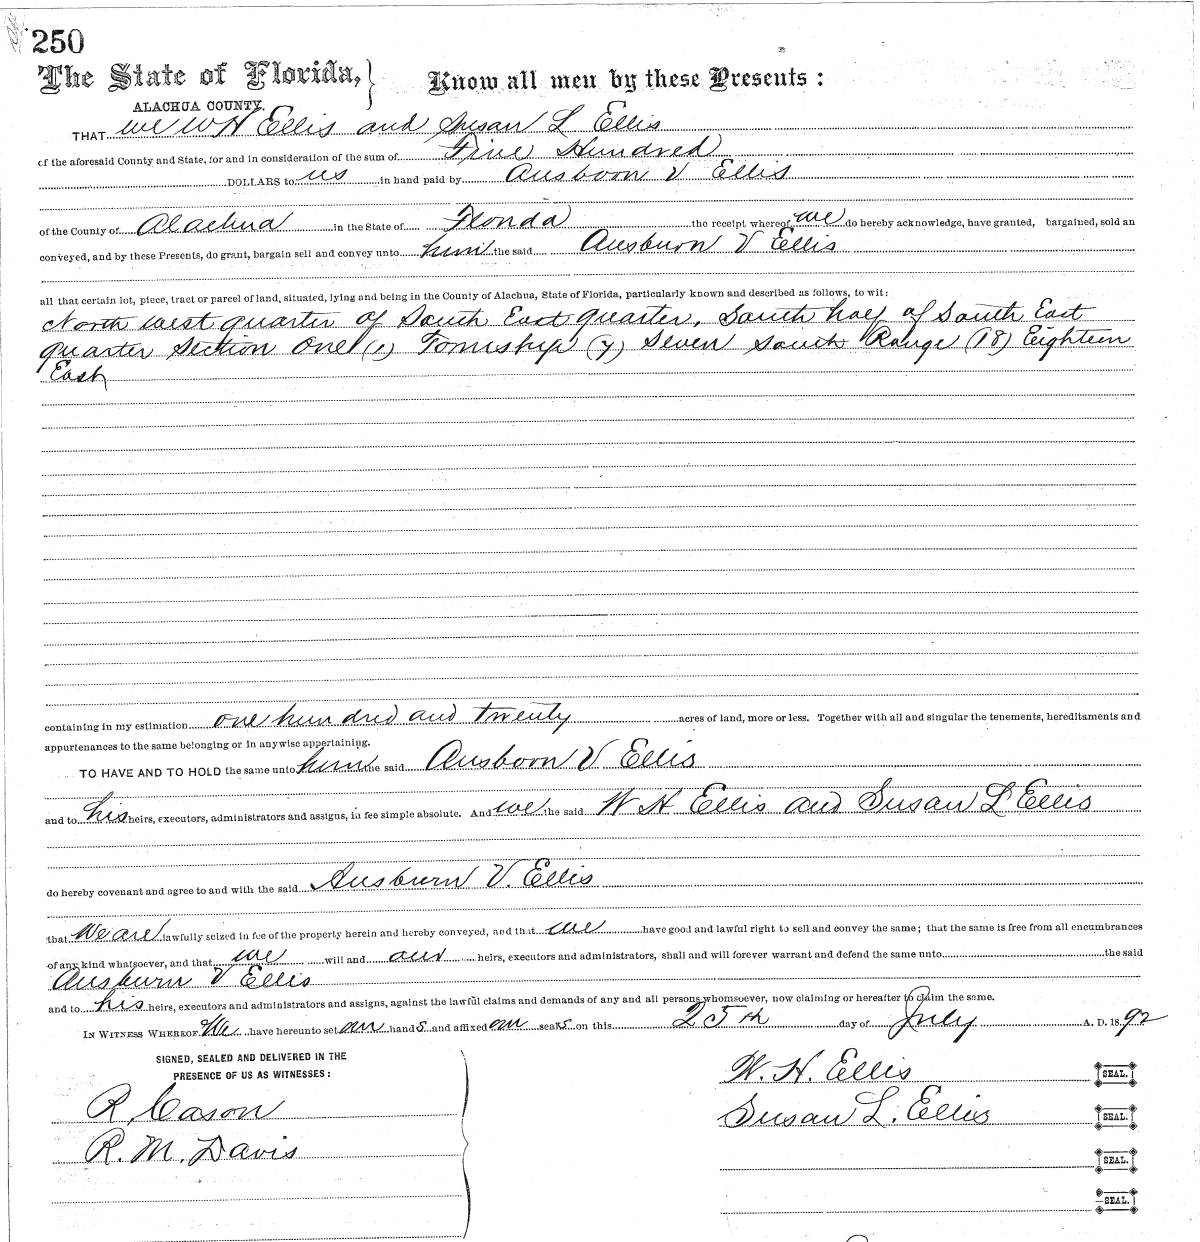 250
The State of Florida,} Know all men by these Presents:
ALACHUA COUNTY.
THAT we W H Ellis and Susan L Ellis
of the aforesaid County and State, for and in consideration of the sum of Five Hundred
DOLLARS to us in hand paid by Ausborn V Ellis
of the County of Alachua in the State of Florida the receipt whereof we do hereby acknowledge, have granted, bargained, sold an
conveyed, and by these Presents, do grant, bargain sell and convey unto him the said Ausburn V Ellis
all that certain lot, piece, tract or parcel of land, situated, lying and being in the County of Alachua, State of Florida, particularly known and described as follows, to wit:
North west quarter of South East quarter, South half of South East
quarter Section One (1) Township (7) Seven South Range (18) Eighteen
East
containing in my estimation one hundred and twenty acres of land, more or less. Together with all and singular the tenements, hereditaments and
appurtenances to the same belonging or in anywise appertaining.
TO HAVE AND TO HOLD the same unto him the said Ausborn V Ellis
and to his heirs, executors, administrators and assigns, in fee simple absolute. And we the said W H Ellis and Susan L Ellis
do hereby covenant and agree to and with the said Ausburn V. Ellis
that We are lawfully seized in fee of the property herein and hereby conveyed, and that we have good and lawful right to sell and convey the same; that the same is free from all encumbrances
of any kind whatsoever, and that we will and our heirs, executors and administrators, shall and will forever warrant and defend the same unto the said
Ausburn V Ellis
and to his heirs, executors and administrators and assigns, against the lawful claims and demands of any and all persons whomsoever, now claiming or hereafter to claim the same.
IN WITNESS WHEREOF We have hereunto set our hands and affixed our seals on this 25th day of July A. D. 1892
SIGNED, SEALED AND DELIVERED IN THE
PRESENCE OF US AS WITNESSES:
W. H. Ellis SEAL.
R Cason
Susan L. Ellis SEAL.
R. M. Davis
SEAL.
SEAL.